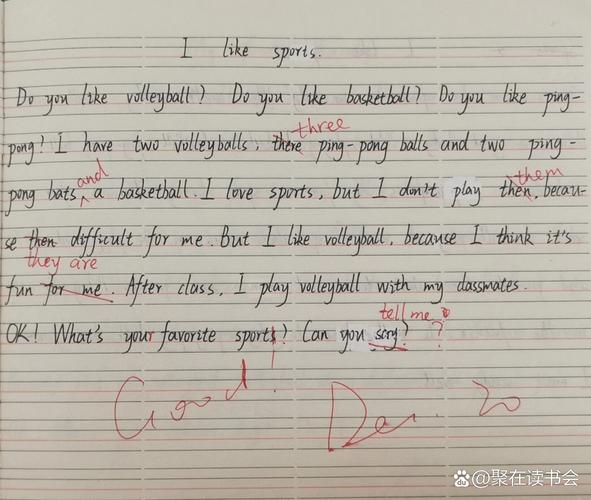 I like sports.
Do you like volleyball? Do you like basketball? Do you like ping-
three
pong? I have two volleyballs, there ping-pong balls and two ping-
and them
pong bats a basketball. I love sports, but I don't play then, becau-
se then difficult for me. But I like volleyball, because I think it's
they are
fun for me. After class, I play volleyball with my classmates.
tell me
OK! What's your favorite sports? Can you say? ?
Good!
聚在读书会